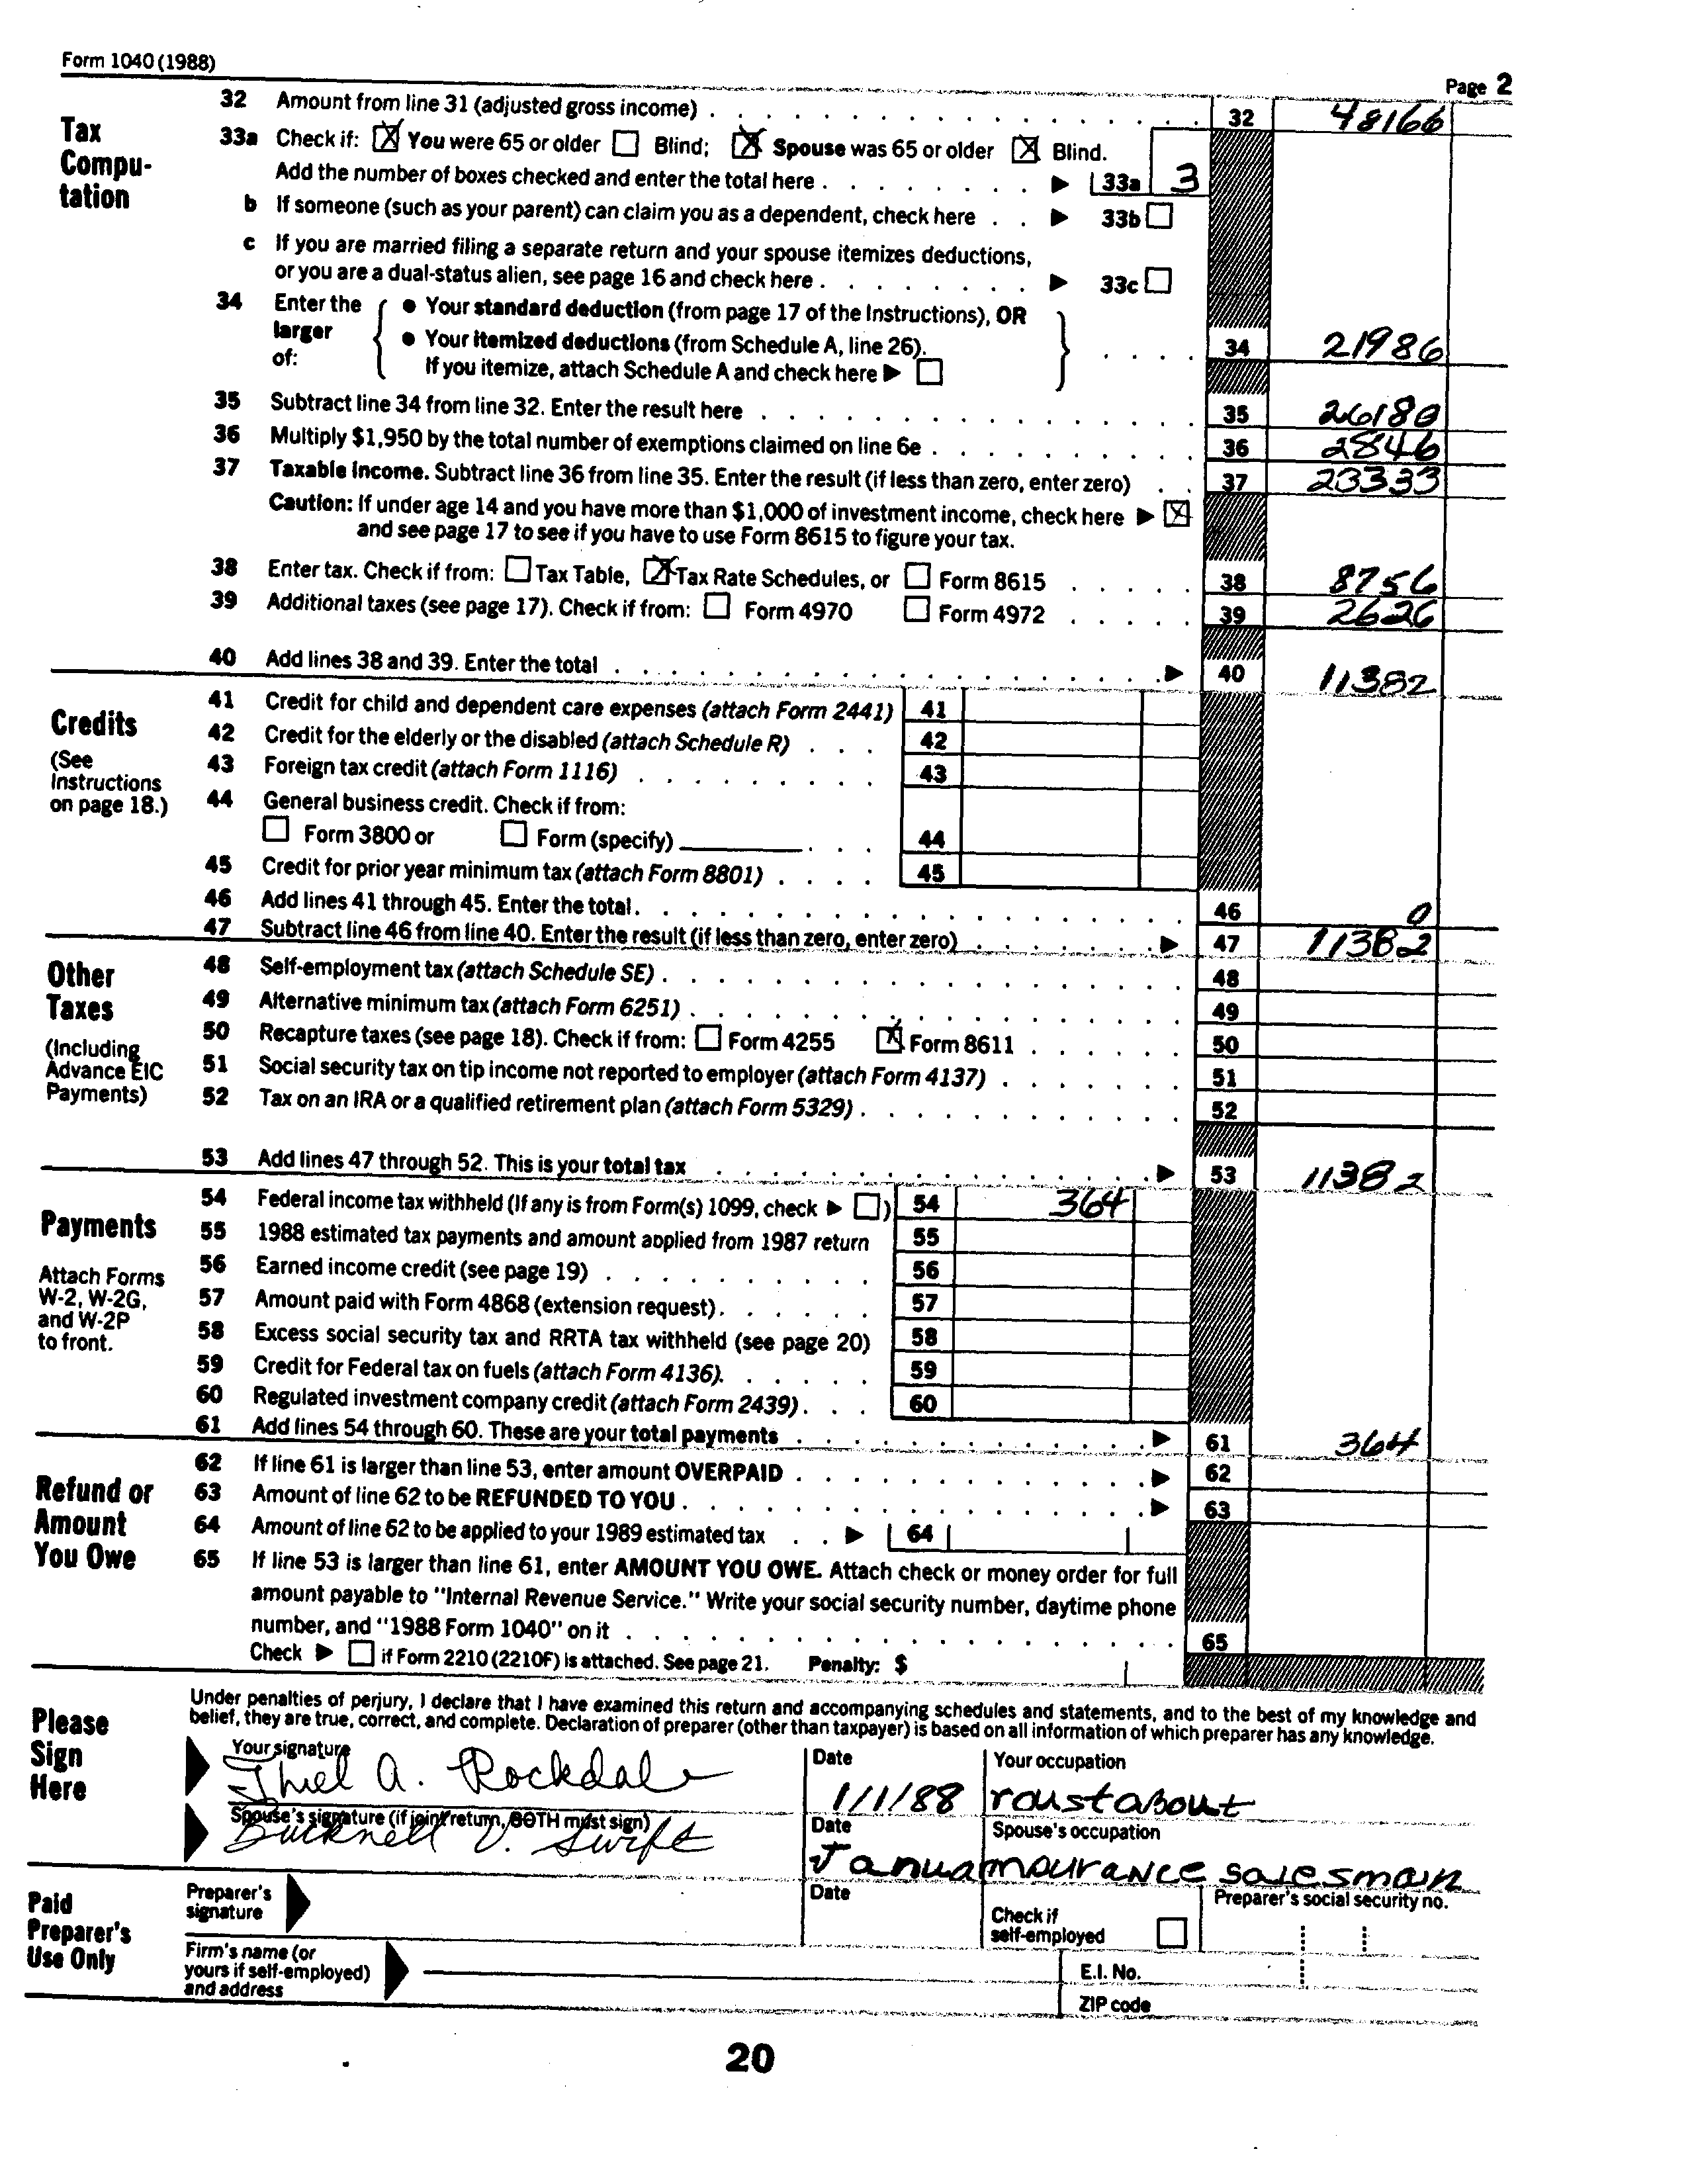 Form 1040 (1988)
Page 2
Tax Compu-tation
32 Amount from line 31 (adjusted gross income) . . . 32 48166
33a Check if: ☒ You were 65 or older ☐ Blind; ☒ Spouse was 65 or older ☒ Blind.
Add the number of boxes checked and enter the total here . . . ▶ 33a 3
b If someone (such as your parent) can claim you as a dependent, check here . . ▶ 33b ☐
c If you are married filing a separate return and your spouse itemizes deductions,
or you are a dual-status alien, see page 16 and check here . . . ▶ 33c ☐
34 Enter the larger of: { ● Your standard deduction (from page 17 of the Instructions), OR
● Your itemized deductions (from Schedule A, line 26).
If you itemize, attach Schedule A and check here ▶ ☐ } . . . . 34 21986
35 Subtract line 34 from line 32. Enter the result here . . . 35 26180
36 Multiply $1,950 by the total number of exemptions claimed on line 6e . . . 36 2846
37 Taxable income. Subtract line 36 from line 35. Enter the result (if less than zero, enter zero) . . 37 23333
Caution: If under age 14 and you have more than $1,000 of investment income, check here ▶ ☒
and see page 17 to see if you have to use Form 8615 to figure your tax.
38 Enter tax. Check if from: ☐ Tax Table, ☒ Tax Rate Schedules, or ☐ Form 8615 . . . 38 8756
39 Additional taxes (see page 17). Check if from: ☐ Form 4970 ☐ Form 4972 . . . 39 2626
40 Add lines 38 and 39. Enter the total . . . ▶ 40 11382
Credits
(See Instructions on page 18.)
41 Credit for child and dependent care expenses (attach Form 2441) 41
42 Credit for the elderly or the disabled (attach Schedule R) . . . 42
43 Foreign tax credit (attach Form 1116) . . . 43
44 General business credit. Check if from:
☐ Form 3800 or ☐ Form (specify) ______ . . . 44
45 Credit for prior year minimum tax (attach Form 8801) . . . . 45
46 Add lines 41 through 45. Enter the total . . . 46 0
47 Subtract line 46 from line 40. Enter the result (if less than zero, enter zero) . . . ▶ 47 11382
Other Taxes
(Including Advance EIC Payments)
48 Self-employment tax (attach Schedule SE) . . . 48
49 Alternative minimum tax (attach Form 6251) . . . 49
50 Recapture taxes (see page 18). Check if from: ☐ Form 4255 ☒ Form 8611 . . . 50
51 Social security tax on tip income not reported to employer (attach Form 4137) . . . 51
52 Tax on an IRA or a qualified retirement plan (attach Form 5329) . . . 52
53 Add lines 47 through 52. This is your total tax . . . ▶ 53 11382
Payments
Attach Forms W-2, W-2G, and W-2P to front.
54 Federal income tax withheld (If any is from Form(s) 1099, check ▶ ☐) 54 364
55 1988 estimated tax payments and amount applied from 1987 return 55
56 Earned income credit (see page 19) . . . 56
57 Amount paid with Form 4868 (extension request) . . . 57
58 Excess social security tax and RRTA tax withheld (see page 20) 58
59 Credit for Federal tax on fuels (attach Form 4136). . . . 59
60 Regulated investment company credit (attach Form 2439) . . . 60
61 Add lines 54 through 60. These are your total payments . . . ▶ 61 364
Refund or Amount You Owe
62 If line 61 is larger than line 53, enter amount OVERPAID . . . ▶ 62
63 Amount of line 62 to be REFUNDED TO YOU . . . ▶ 63
64 Amount of line 62 to be applied to your 1989 estimated tax . . ▶ 64
65 If line 53 is larger than line 61, enter AMOUNT YOU OWE. Attach check or money order for full
amount payable to "Internal Revenue Service." Write your social security number, daytime phone
number, and "1988 Form 1040" on it . . . 65
Check ▶ ☐ if Form 2210 (2210F) is attached. See page 21. Penalty: $
Please Sign Here
Under penalties of perjury, I declare that I have examined this return and accompanying schedules and statements, and to the best of my knowledge and
belief, they are true, correct, and complete. Declaration of preparer (other than taxpayer) is based on all information of which preparer has any knowledge.
Your signature Date Your occupation
Thiel A. Rockdale 1/1/88 roustabout
Spouse's signature (if joint return, BOTH must sign) Date Spouse's occupation
Bucknell V. Swift salesman
Paid Preparer's Use Only
Preparer's signature Date Check if self-employed ☐ Preparer's social security no.
Firm's name (or yours if self-employed) and address E.I. No.
ZIP code
20